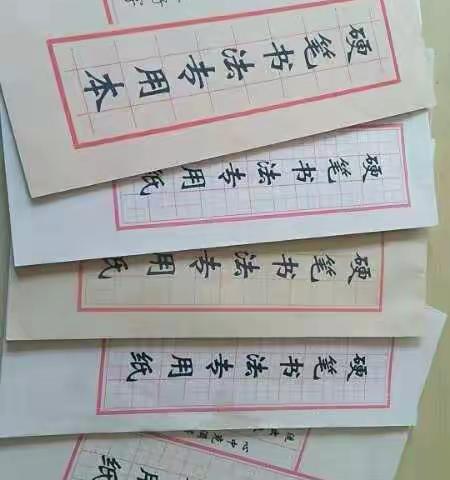 硬笔书法专用本
硬笔书法专用纸
硬笔书法专用纸
硬笔书法专用纸
用纸